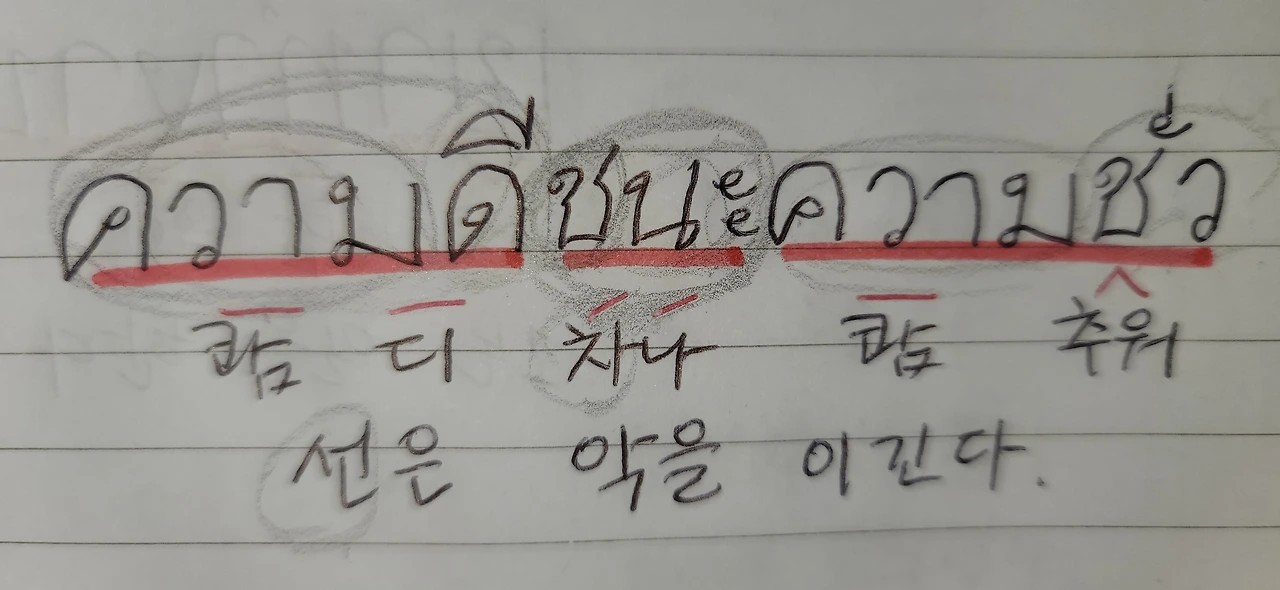 ความดีชนะความชั่ว
캄 디 차나 캄 추워
선은 악을 이긴다.